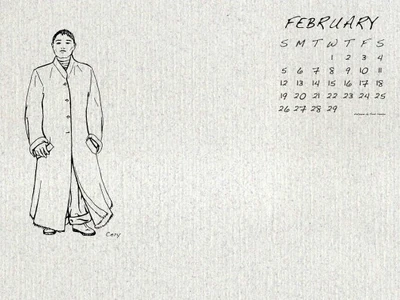 FEBRUARY
S M T W T F S
1 2 3 4
5 6 7 8 9 10 11
12 13 14 15 16 17 18
19 20 21 22 23 24 25
26 27 28 29
Cary